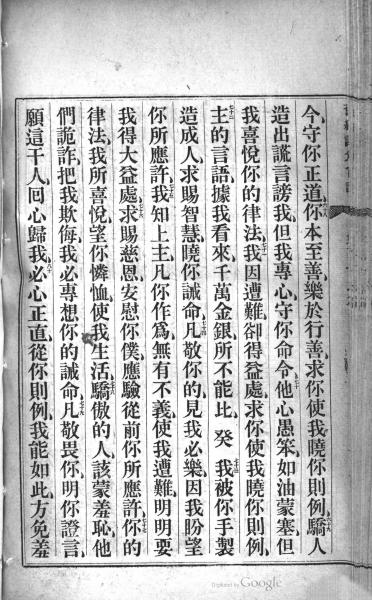 今守你正道、六十八你本至善、樂於行善、求你使我曉你則例、六十九驕人
造出謊言謗我、但我專心守你命令、七十他心愚笨、如油蒙塞、但
我喜悅你的律法、七十一我因遭難、卻得益處、求你使我曉你則例、
七十二主的言語、據我看來、千萬金銀、所不能比、 癸 七十三我被你手製
造成人、求賜智慧、曉你誡命、七十四凡敬你的、見我必樂、因我盼望
你所應許、七十五我知上主、凡你作爲、無有不義、使我遭難、明明要
我得大益處、七十六求賜慈恩、安慰你僕、應驗從前你所應許、七十七你的
律法、我所喜悅、望你憐恤、使我生活、七十八驕傲的人、該蒙羞恥、他
們詭詐把我欺侮、我必專想你的誡命、七十九凡敬畏你明你證言、
願這干人回心歸我、八十我必心正直、從你則例、我能如此、方免羞
Digitized by Google